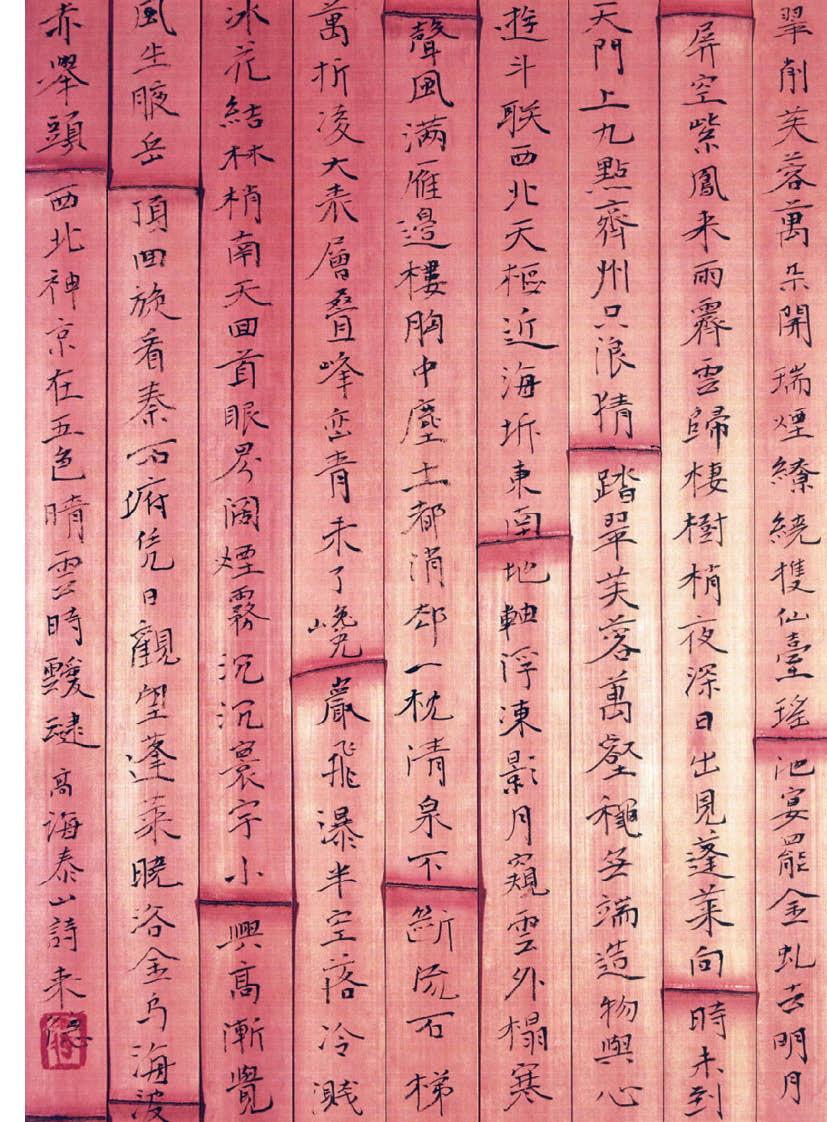 翠削芙蓉萬朵開瑞煙繚繞擭仙臺瑤池宴罷金虬去明月
屏空紫鳳来雨霽雲歸棲樹梢夜深日出見蓬莱向時未到
天門上九點齊州只浪猜踏翠芙蓉萬壑穐無端造物與心
遊斗联西北天樞近海坼東南地軸浮凍影月窺雲外榻寒
聲風满雁邊樓胸中塵土都消却一枕清泉不斷流石梯
萬折凌大表層叠峰峦青未了巉巖飛瀑半空落冷濺
冰花結林梢南天回首眼界阔煙霧沉沉寰宇小興高漸覺
風生腋岳頂回旋看秦石府凭日觀望蓬莱晓浴金乌海波
赤舉頭西北神京在五色晴雲時靉靆高海泰山詩来